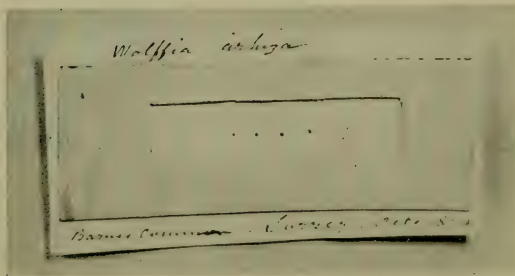 Wolffia arhiza
Barnes Common. Surrey